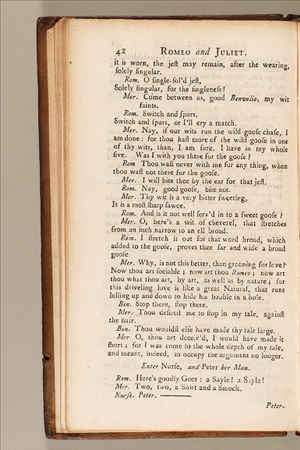 42 ROMEO and JULIET.
it is worn, the jest may remain, after the wearing,
solely singular.
Rom. O single-sol'd jest,
Solely singular, for the singleness!
Mer. Come between us, good Benvolio, my wit
faints.
Rom. Switch and spurs,
Switch and spurs, or I'll cry a match.
Mer. Nay, if our wits run the wild-goose chase, I
am done: for thou hast more of the wild-goose in one
of thy wits, than, I am sure, I have in my whole
five. Was I with you there for the goose?
Rom Thou wast never with me for any thing, when
thou wast not there for the goose.
Mer. I will bite thee by the ear for that jest.
Rom. Nay, good goose, bite not.
Mer. Thy wit is a very bitter sweeting,
It is a most sharp sawce.
Rom. And is it not well serv'd in to a sweet goose?
Mer. O, here's a wit of cheverel, that stretches
from an inch narrow to an ell broad.
Rom. I stretch it out for that word broad, which
added to the goose, proves thee far and wide a broad
goose.
Mer. Why, is not this better, than groaning for love?
Now thou art sociable; now art thou Romeo; now art
thou what thou art, by art, as well as by nature; for
this driveling love is like a great Natural, that runs
lolling up and down to hide his bauble in a hole.
Ben. Stop there, stop there.
Mer. Thou desirest me to stop in my tale, against
the hair.
Ben. Thou wouldst else have made thy tale large.
Mer O, thou art deceiv'd, I would have made it
short; for I was come to the whole depth of my tale,
and meant, indeed, to occupy the argument no longer.
Enter Nurse, and Peter her Man.
Rom. Here's goodly Geer: a Sayle! a Sayle!
Mer. Two, two, a Shirt and a Smock.
Nurse. Peter.
Peter.